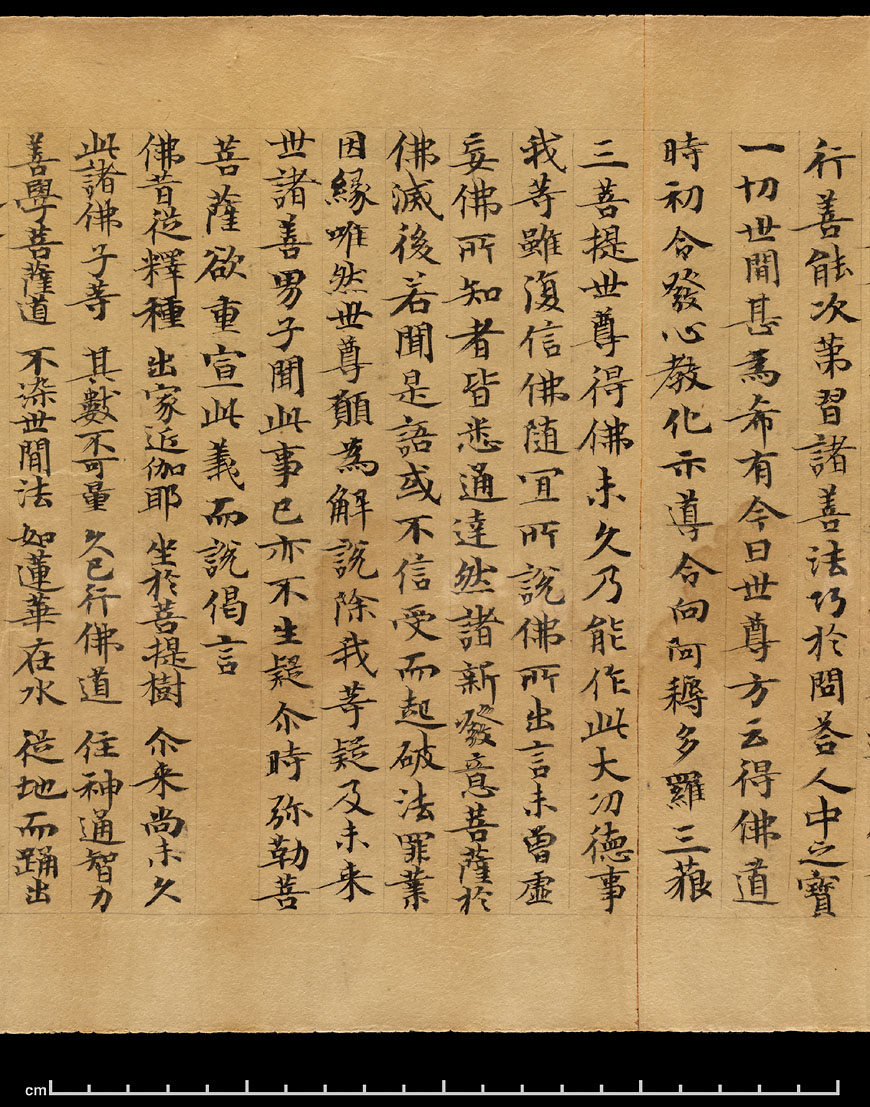 行善能次第習諸善法巧於問荅人中之寶
一切世間甚為希有今日世尊方云得佛道
時初令發心教化示導令向阿耨多羅三藐
三菩提世尊得佛未久乃能作此大功德事
我等雖復信佛随宜所說佛所出言未曾虛
妄佛所知者皆悉通達然諸新發意菩薩於
佛滅後若聞是語或不信受而起破法罪業
因緣唯然世尊願為解說除我等疑及未来
世諸善男子聞此事已亦不生疑尒時弥勒菩
菩薩欲重宣此義而說偈言
佛昔從釋種 出家近伽耶 坐於菩提樹 尒来尚未久
此諸佛子等 其數不可量 久已行佛道 住神通智力
善學菩薩道 不染世間法 如蓮華在水 從地而踊出